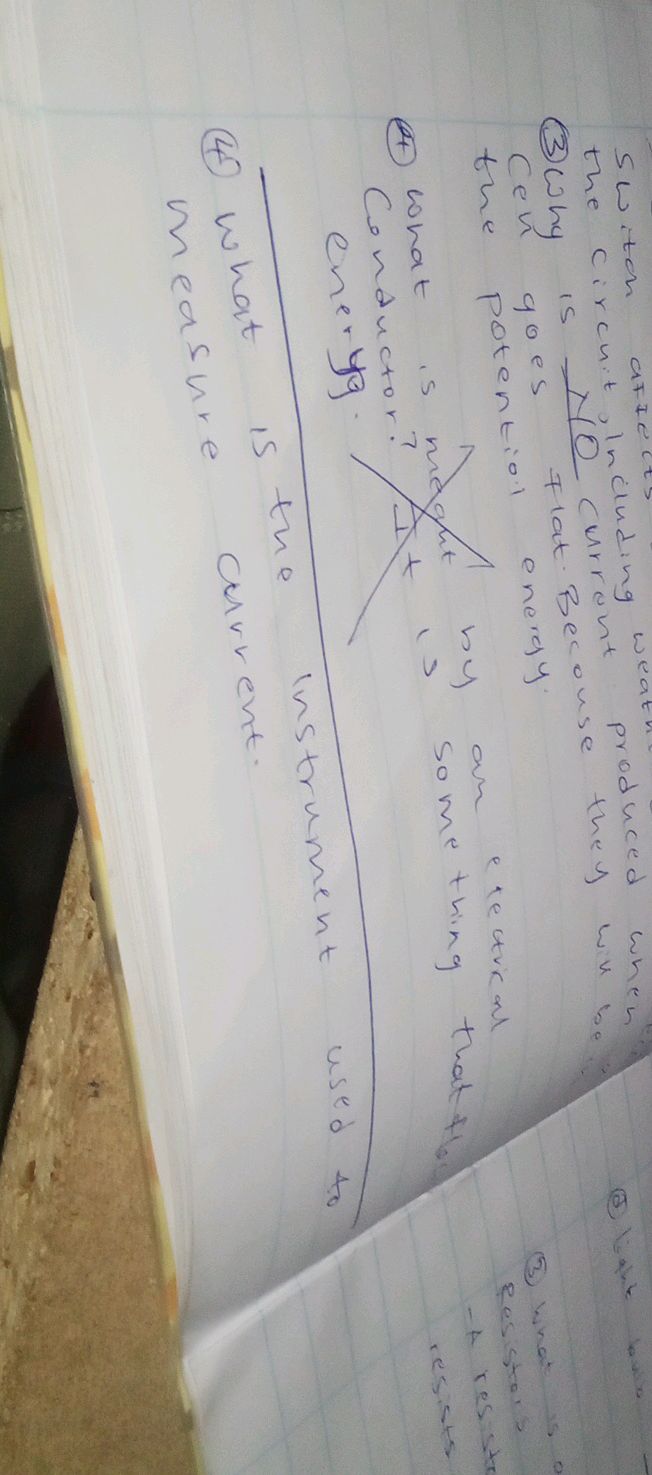 switch affects
the circuit, Including weath
③ Why is NO current produced when
Cell goes flat. Because they will be
the potential energy.
④ What is meant by an electrical
Conductor? It is something that
energy.
④ what is the instrument used to
measure current.
⑤ light
③ What is
Resistors
- A
resists